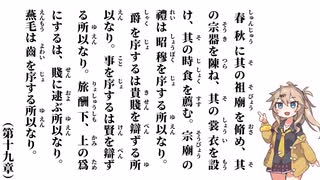 春秋に其の祖廟を脩め、其
の宗器を陳ね、其の裳衣を設
け、其の時食を薦む。宗廟の
礼は昭穆を序する所以なり。
爵を序するは貴賤を辯ずる所
以なり。事を序するは賢を辯ず
る所以なり。旅酬下、上の為
にするは、賤に逮ぶ所以なり。
燕毛は歯を序する所以なり。
(第十九章)